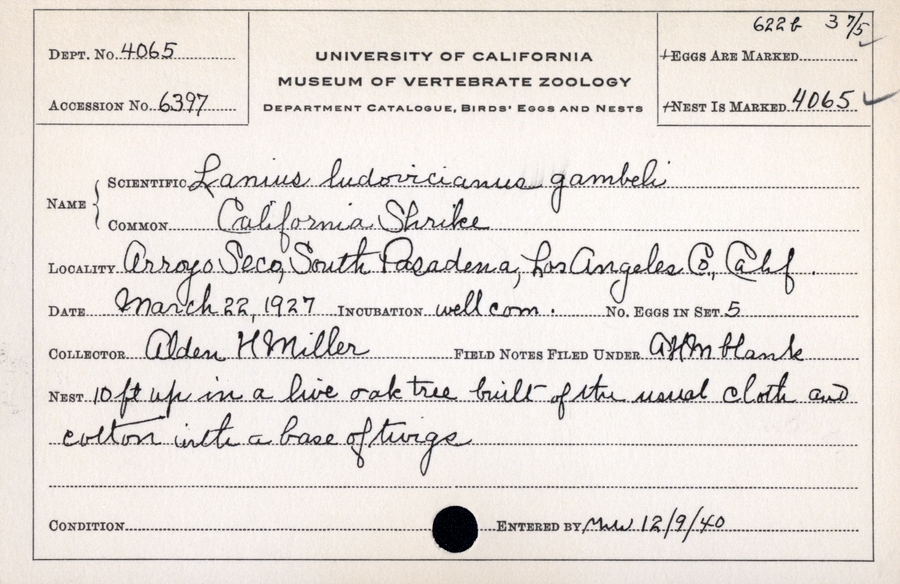 622b 3 7/5
DEPT. No. 4065
UNIVERSITY OF CALIFORNIA
+EGGS ARE MARKED
MUSEUM OF VERTEBRATE ZOOLOGY
ACCESSION No. 6397
DEPARTMENT CATALOGUE, BIRDS' EGGS AND NESTS
+NEST IS MARKED 4065 ✓
NAME { SCIENTIFIC Lanius ludovicianus gambeli
COMMON California Shrike
LOCALITY Arroyo Seco, South Pasadena, Los Angeles Co., Calif.
DATE March 22, 1927 INCUBATION well com. No. EGGS IN SET 5
COLLECTOR Alden H Miller FIELD NOTES FILED UNDER AHM blank
NEST 10 ft up in a live oak tree built of the usual cloth and
cotton with a base of twigs
CONDITION ENTERED BY MW 12/9/40